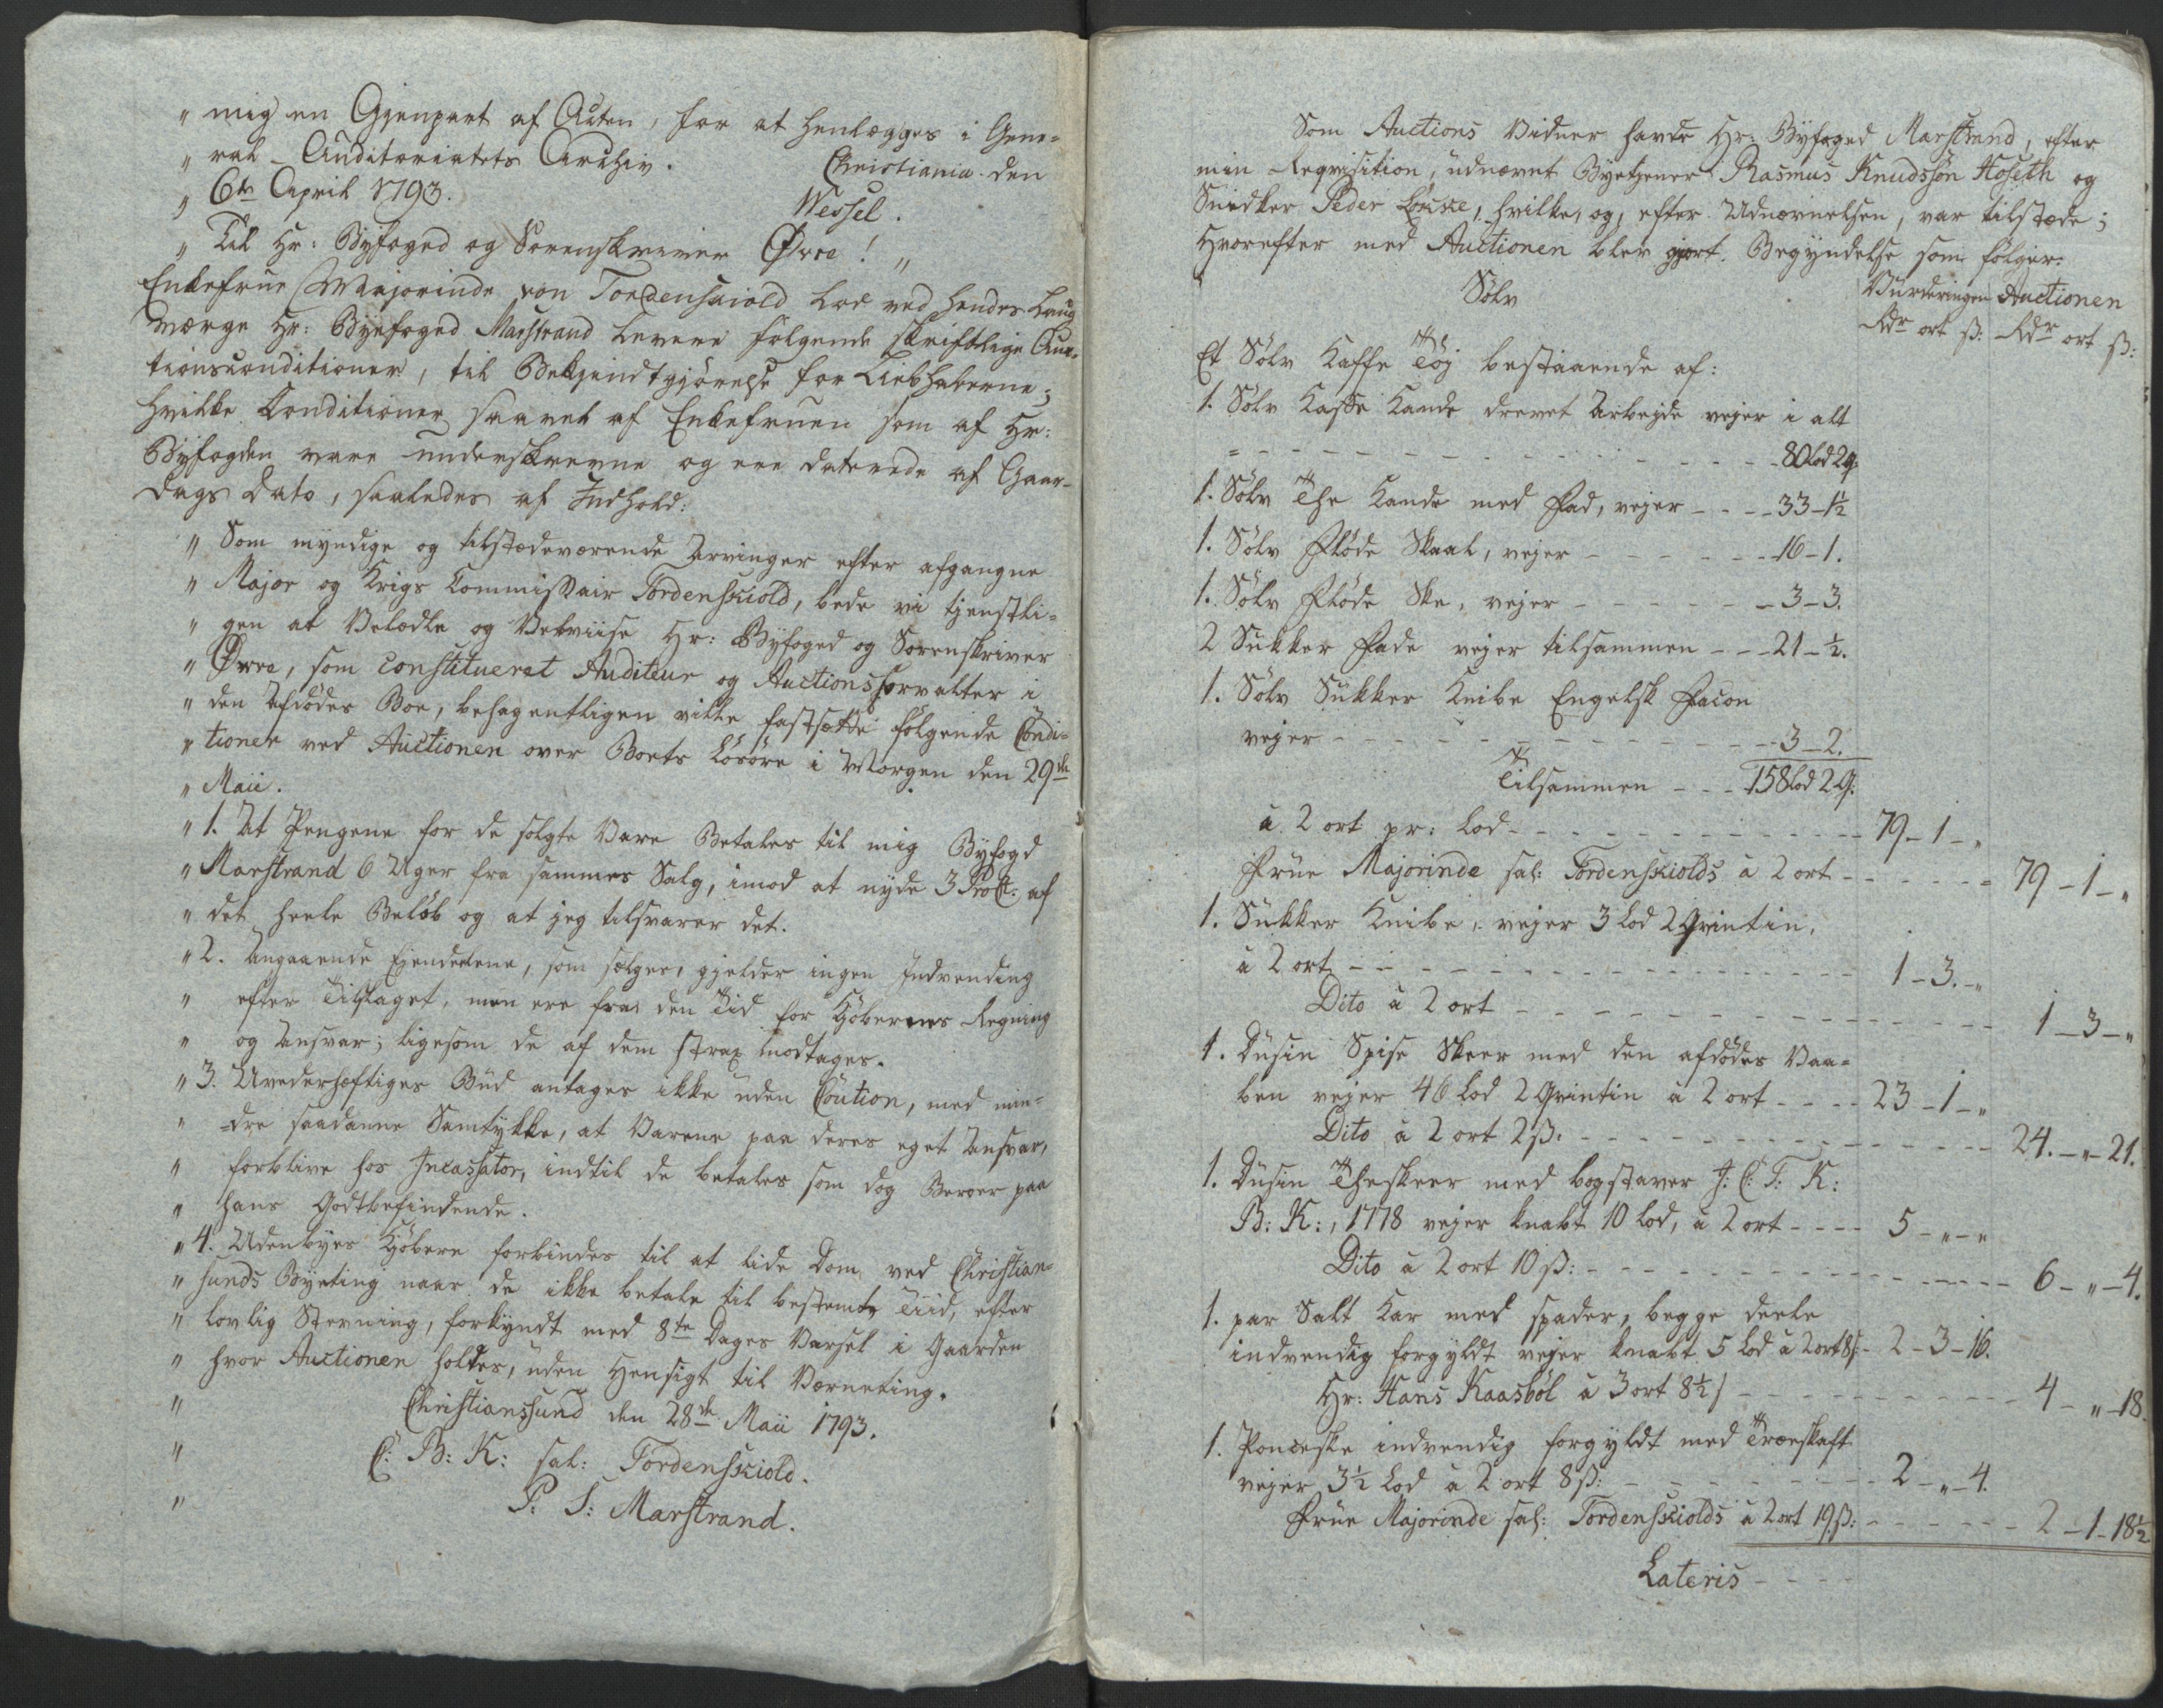 " mig en Gjenpart af Acten, for at henlægges i Gene-
" ral-Auditoriatets Archiv. Christiania den
" 6te April 1793. Wessel.
" Til Hr: Byfoged og Sorenskriver Øvre! "
Enkefrue Majorinde von Tordenskiold lod ved hendes Laug
værge Hr: Byefoged Marstrand levere følgende skriftlige Auc-
tionsconditioner, til Bekjendtgjørelse for Liebhaberne;
hvilke Conditioner saavel af Enkefruen som af Hr:
Byfogden vare underskrevne og ere daterede af Gaar-
dags Dato, saaledes af Indhold:
" Som myndige og tilstædeværende Arvinger efter afgangne
" Major og Krigs Commissair Tordenskiold, bede vi tjenstli-
" gen at Velædle og Velviise Hr: Byfoged og Sorenskriver
" Øvre, som constitueret Auditeur og Auctionsforvalter i
" den Afdødes Boe, behagentligen ville fastsætte følgende Condi-
" tioner ved Auctionen over Boets Løsøre i Morgen den 29de
" Maii.
" 1. At Pengene for de solgte Vare Betales til mig Byfogd
" Marstrand 6 Uger fra sammes Salg, imod at nyde 3 ProCt: af
" det heele Beløb og at jeg tilsvarer det.
" 2. Angaaende Ejendelene, som sælges, gjelder ingen Indvending
" efter Tilslaget, men ere fra den Tid for Kjøbernes Regning
" og Ansvar; ligesom de af dem strax modtages.
" 3. Uvederhæftiges Bud antages ikke uden Caution, med min-
" dre saadanne Samtykke, at Varene paa deres eget Ansvar,
" forblive hos Incassator, indtil de betales som dog Beroer paa
" hans Godtbefindende.
" 4. Udenbyes Kjøbere forbindes til at lide Dom ved Christian-
" sunds Byeting naar de ikke betale til bestemte Tiid, efter
" lovlig Stevning, forkyndt med 8te Dages Varsel i Gaarden
" hvor Auctionen holdes, uden Hensigt til Værneting.
" Christianssund den 28de Maii 1793.
" C: B: K: sal: Tordenskiold.
" P. S: Marstrand.
Som Auctions Vidner havde Hr: Byfoged Marstrand, efter
min Reqvisition, udnævnt Byetjener Rasmus Knudssøn Hoseth og
Snidker Peder Løkke, hvilke, og, efter Udnævnelsen, var tilstæde;
Hvorefter med Auctionen blev gjort Begyndelse som følger:
Sølv Vurderingen Auctionen
Rdr ort ß: Rdr ort ß:
Et Sølv Kaffe Tøj bestaaende af:
1. Sølv Kaffe Kande drevet Arbejde vejer i alt
80 Lod 2 q:
1. Sølv The Kande med Fad, vejer 33-1½
1. Sølv Fløde Skaal, vejer 16-1.
1. Sølv Fløde Ske, vejer 3-3.
2 Sukker Fade vejer tilsammen 21-½.
1. Sølv Sukker Knibe Engelsk Facon
vejer 3-2.
Tilsammen 158 Lod 2 q:
á 2 ort pr: Lod 79-1-"
Frue Majorinde sal: Tordenskiolds á 2 ort 79-1-"
1. Sukker Knibe, vejer 3 Lod 2 Qvintin,
á 2 ort 1-3.-"
Dito á 2 ort 1-3-"
1. Dusin Spise Skeer med den afdødes Vaa-
ben vejer 46 Lod 2 Qvintin á 2 ort 23-1-"
Dito á 2 ort 2 ß: 24.-"-21.
1. Dusin Theskeer med bogstaver J: C: T: K:
B: K:, 1778 vejer knabt 10 Lod, á 2 ort 5-"-"
Dito á 2 ort 10 ß: 6-"-4.
1. par Salt Kar med spader, begge deele
indvendig forgyldt vejer knabt 5 Lod á 2 ort 8 ß 2-3-16.
Hr: Hans Kaasbøl á 3 ort 8½ ß 4-"-18.
1. Ponceske indvendig forgyldt med Træeskaft
vejer 3½ Lod á 2 ort 8 ß: 2-"-4.
Frue Majorinde sal: Tordenskiolds á 2 ort 19 ß: 2-1-18½
Lateris